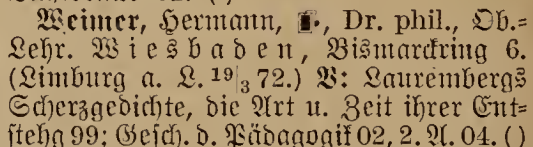 Weimer, Hermann, Dr. phil., Ob.=
Lehr. Wiesbaden, Bismarckring 6.
(Limburg a. L. 19/3 72.) V: Laurembergs
Scherzgedichte, die Art u. Zeit ihrer Ent=
stehg 99; Gesch. d. Pädagogik 02, 2. A. 04. ()